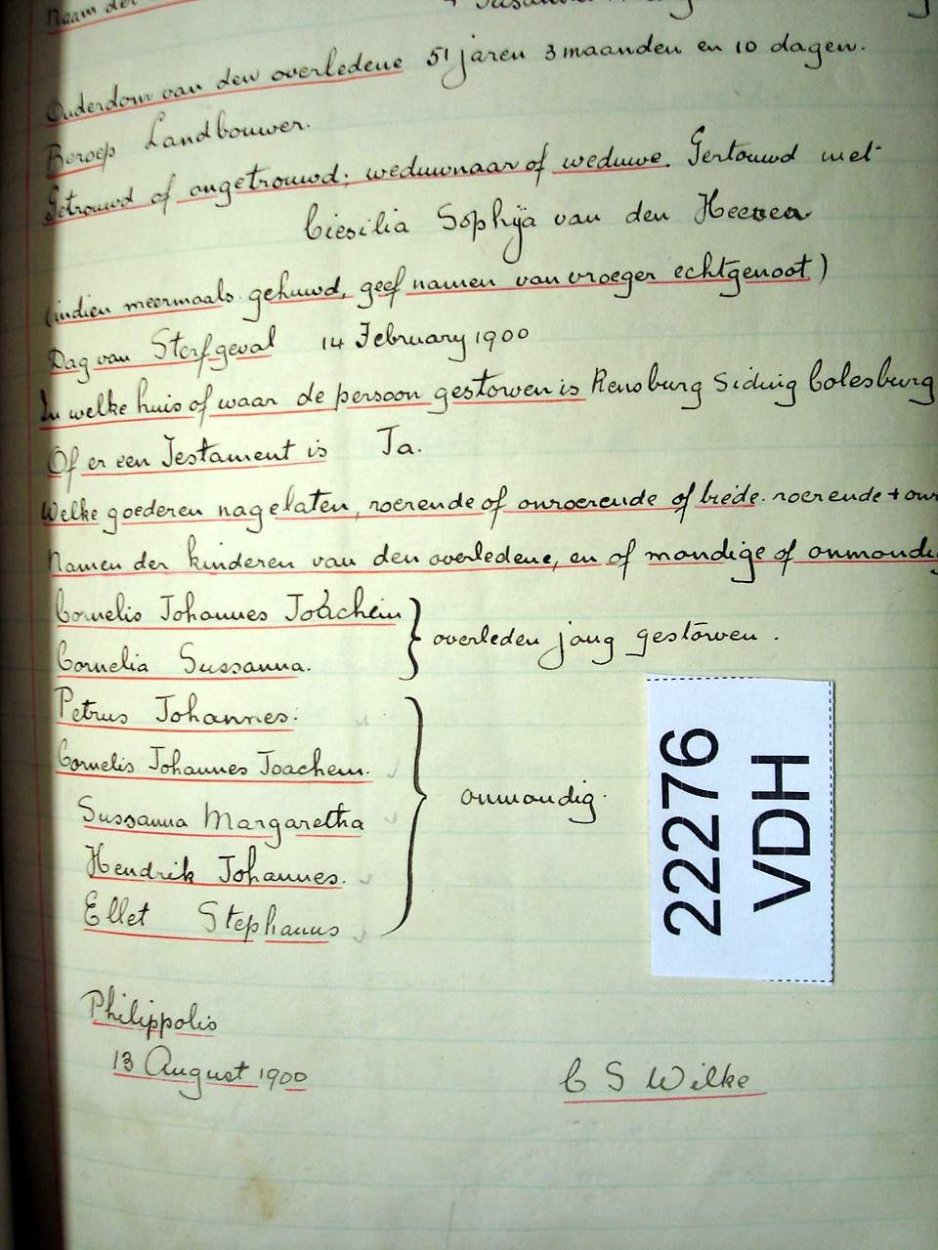 Naam der
Ouderdom van den overledene 51 jaren 3 maanden en 10 dagen.
Beroep Landbouwer.
Getrouwd of ongetrouwd; weduwnaar of weduwe. Gertouwd met
Ciesilia Sophÿa van den Heever
(indien meermaals gehuwd, geef namen van vroeger echtgenoot.)
Dag van Sterfgeval 14 February 1900
In welke huis of waar de persoon gestorven is Rensburg Siding Colesburg
Of er een Testament is Ja.
Welke goederen nagelaten, roerende of onroerende of beide. roerende +
Namen der kinderen van den overledene, en of mondige of onmondi
Cornelis Johannes Joachem
overleden jong gestorven.
Cornelia Sussanna.
Petrus Johannes.
Cornelis Johannes Joachem.
onmondig.
Sussanna Margaretha
Hendrik Johannes.
Ellet Stephanus
22276
VDH
Philippolis
13 August 1900
C S Wilke